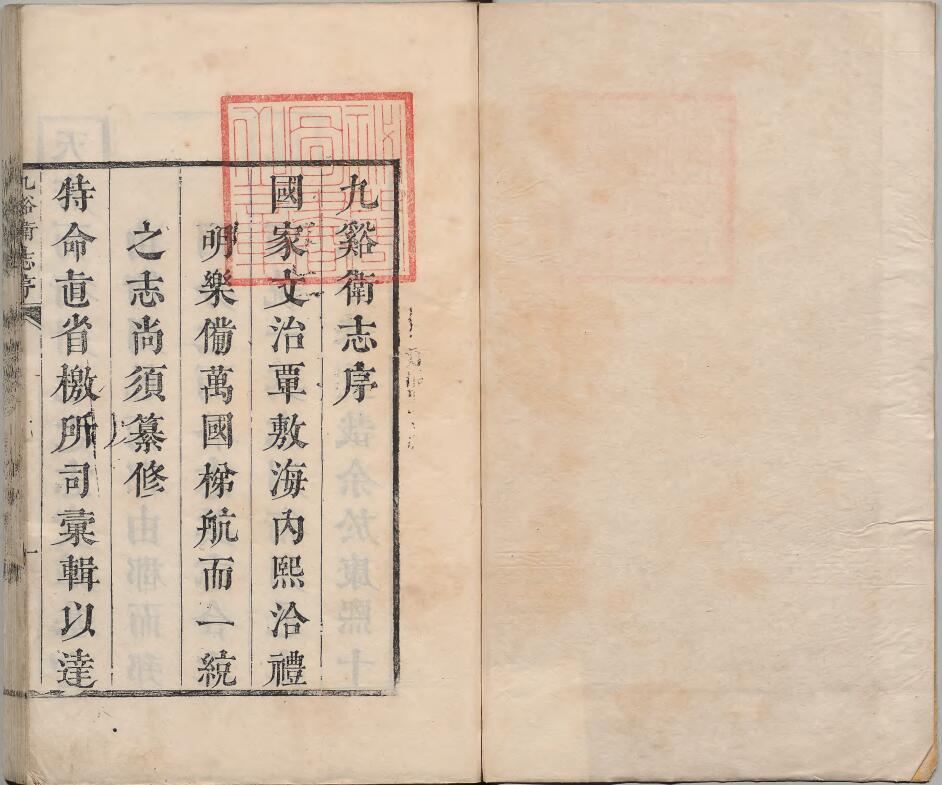 九谿衛志序
國家文治覃敷海內熙洽禮
明樂備萬國梯航而一統
之志尚須纂修
特命直省檄所司彙輯以達
九谿衛志序